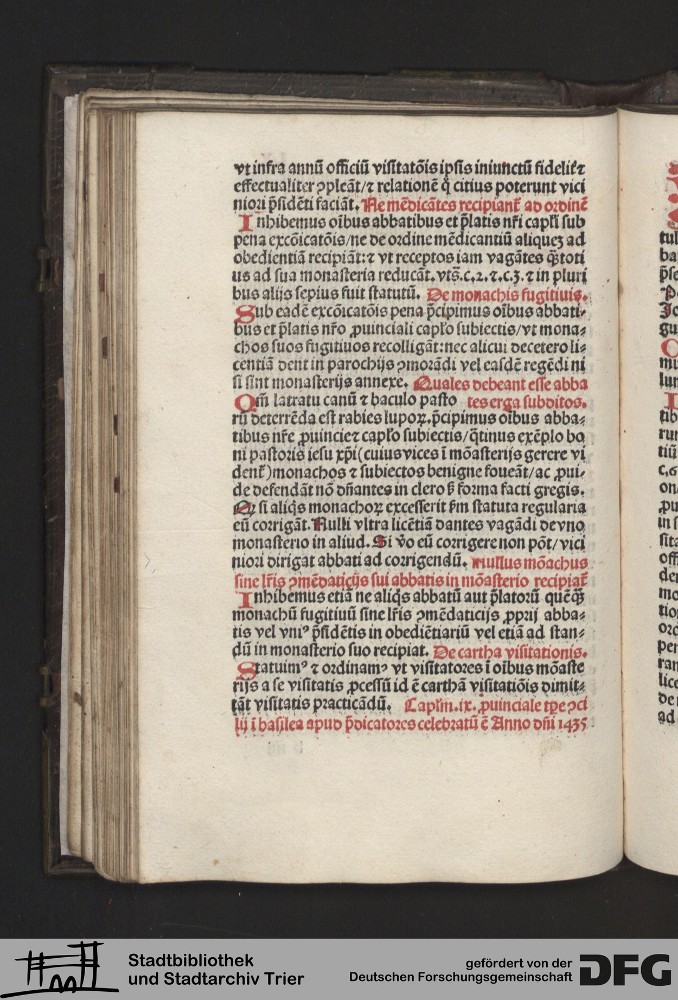 vt infra annū officiū visitatōis ipsis iniunctū fideliť ⁊
effectualiter ꝯpleāt/⁊ relationē ꝙ̄ citius poterunt vici
niori p̄sidēti faciāt. Ne mēdicātes recipianť ad ordinē
Inhibemus oībus abbatibus et p̄latis nr̄i capl̄i sub
pena excōicatōis/ne de ordine mēdicantiū aliquez ad
obedientiā recipiāt:⁊ vt receptos iam vagātes q̄stoti
us ad sua monasteria reducāt. vts̄.c.2.⁊.c.3.⁊ in pluri
bus alijs sepius fuit statutū. De monachis fugitiuis.
Sub eadē excōicatōis pena p̄cipimus oībus abbati⸗
bus et p̄latis nr̄o ꝓuinciali capl̄o subiectis/vt mona⸗
chos suos fugitiuos recolligāt:nec alicui decetero li⸗
centiā dent in parochijs ꝯmorādi vel easdē regēdi ni
si sint monasterijs annexe. Quales debeant esse abba
Qm̄ latratu canū ⁊ baculo pasto tes erga subditos.
rū deterrēda est rabies lupoꝝ.p̄cipimus oībus abba⸗
tibus nr̄e ꝓuincie ⁊ capl̄o subiectis/q̄tinus exēplo bo
ni pastoris iesu xp̄i (cuius vices ī mōasterijs gerere vi
denť) monachos ⁊ subiectos benigne foueāt/ac ꝓui⸗
de defendāt nō dn̄antes in clero ꝫ forma facti gregis.
Qꝛ si aliq̄s monachoꝝ excesserit ẜm statuta regularia
eū corrigāt. Nulli vltra licētiā dantes vagādi de vno
monasterio in aliud. Si v̄o eū corrigere non pōt/vici
niori dirigat abbati ad corrigendū. Nullus mōachus
sine lr̄is ꝯmēdaticijs sui abbatis in mōasterio recipiať
Inhibemus etiā ne aliq̄s abbatū aut p̄latorū quēq̄ꝫ
monachū fugitiuū sine lr̄is ꝯmēdaticijs ꝓprij abba⸗
tis vel vniꝰ p̄sidētis in obediētiariū vel etiā ad stan⸗
dū in monasterio suo recipiat. De cartha visitationis.
Statuimꝰ ⁊ ordinamꝰ vt visitatores ī oībus mōaste
rijs a se visitatis ꝓcessū id ē carthā visitatiōis dimit⸗
tāt visitatis practicādū. Capl̄m.ix. ꝓuinciale tp̄e ꝯci
lij ī basilea apud p̄dicatores celebratū ē Anno dn̄i 1435
Stadtbibliothek
und Stadtarchiv Trier
gefördert von der
Deutschen Forschungsgemeinschaft
DFG